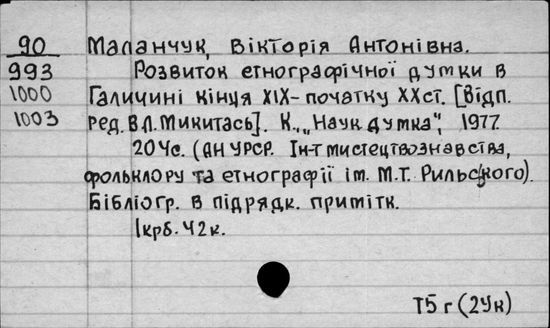 90 Маланчук, Вікторія Антонівна.
993 Розвиток етнографічної думки в
1000 Галичині кінця XIX-початку XXст. [Відп.
1003 ред. В.Л. Микитась]. К., „Наук думка", 1977.
204с. (АН УРСР. Ін-т мистецтвознавства,
фольклору та етнографії ім. М.Т. Рильського).
Бібліогр. в підрядк. примітк.
1крб. 42к.
Т5г(2Ук)